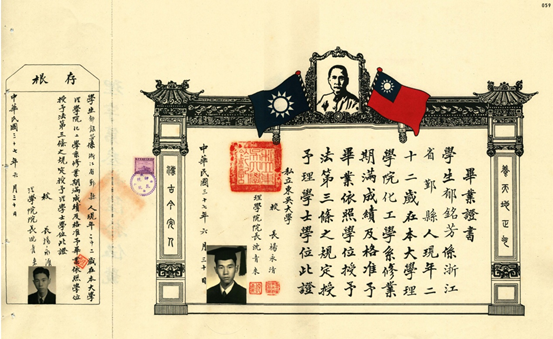 059
養天地正氣
畢業證書
學生郁銘芳係浙江
省鄞縣人現年二
十二歲在本大學理
學院化工學系修業
期滿成績及格准予
畢業依照學位授予
法第三條之規定授
予理學士學位此證
私立東吳大學
校長楊永清
理學院院長沈青來
中華民國三十七年六月三十日
法古今完人
存根
學生郁銘芳係浙江省鄞縣人現年二十二歲在本大學
理學院化工學系修業期滿成績及格准予畢業依照學位
授予法第三條之規定授予理學士學位此證
校長楊永清
理學院院長沈青來
中華民國三十七年六月三十日